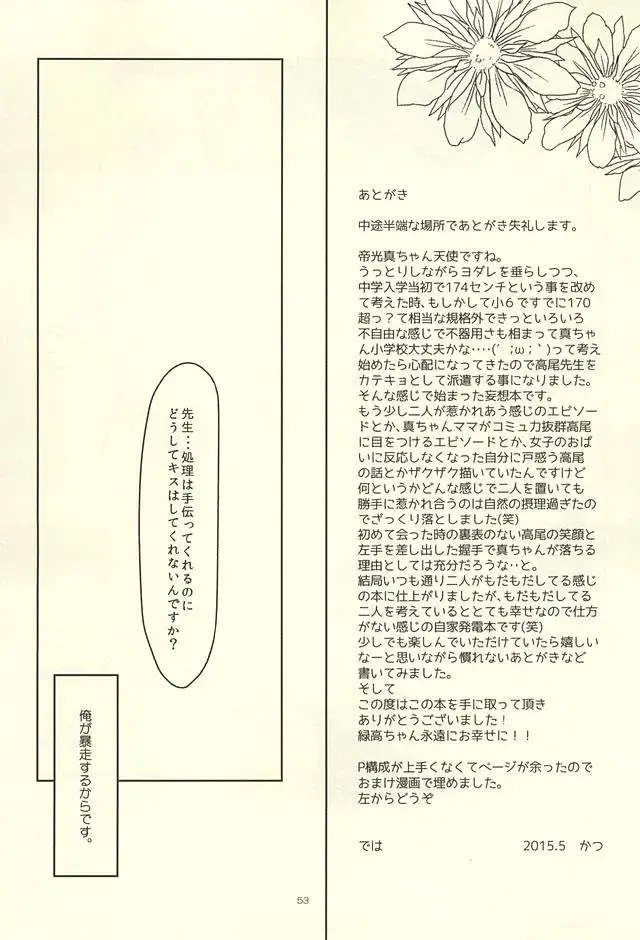 あとがき
中途半端な場所であとがき失礼します。
帝光真ちゃん天使ですね。
うっとりしながらヨダレを垂らしつつ、
中学入学当初で174センチという事を改め
て考えた時、もしかして小６ですでに170
超っ？て相当な規格外できっといろいろ
不自由な感じで不器用さも相まって真ちゃ
ん小学校大丈夫かな‥‥(´；ω；｀)って考え
始めたら心配になってきたので高尾先生を
カテキョとして派遣する事になりました。
そんな感じで始まった妄想本です。
もう少し二人が惹かれあう感じのエピソー
ドとか、真ちゃんママがコミュ力抜群高尾
に目をつけるエピソードとか、女子のおぱ
いに反応しなくなった自分に戸惑う高尾
の話とかザクザク描いていたんですけど
何というかどんな感じで二人を置いても
勝手に惹かれ合うのは自然の摂理過ぎたの
でざっくり落としました(笑)
初めて会った時の裏表のない高尾の笑顔と
左手を差し出した握手で真ちゃんが落ちる
理由としては充分だろうな‥と。
結局いつも通り二人がもだもだしてる感じ
の本に仕上がりましたが、もだもだしてる
二人を考えているととても幸せなので仕方
がない感じの自家発電本です(笑)
少しでも楽しんでいただけていたら嬉しい
なーと思いながら慣れないあとがきなど
書いてみました。
そして
この度はこの本を手に取って頂き
ありがとうございました！
緑高ちゃん永遠にお幸せに！！
P構成が上手くなくてページが余ったので
おまけ漫画で埋めました。
左からどうぞ
では 2015.5 かつ
53